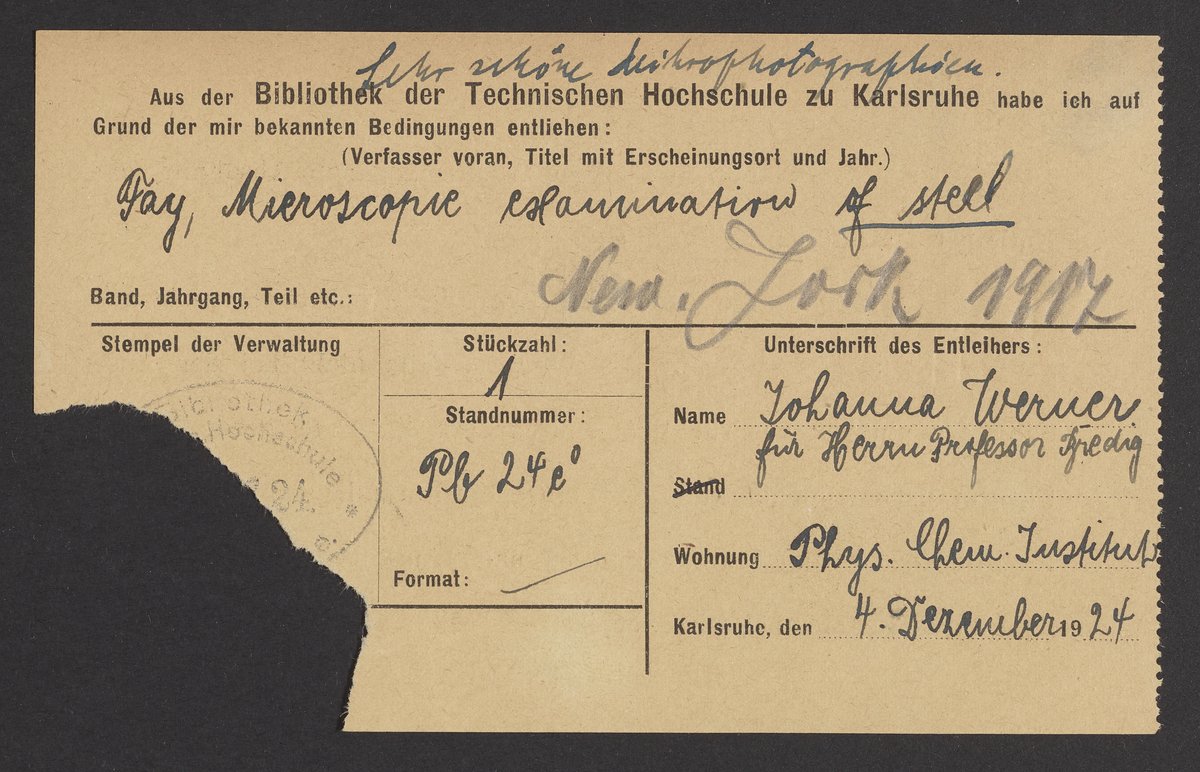 Sehr schöne Mikrophotographien.
Aus der Bibliothek der Technischen Hochschule zu Karlsruhe habe ich auf
Grund der mir bekannten Bedingungen entliehen:
(Verfasser voran, Titel mit Erscheinungsort und Jahr.)
Fay, Microscopic examination of stell
New. York 1917
Band, Jahrgang, Teil etc.:
Stempel der Verwaltung
bliothek
Hochschule
24.
Stückzahl:
1
Standnummer:
Pb 24e⁰
Format:
Unterschrift des Entleihers:
Name Johanna Werner
für Herrn Professor Bredig
Stand
Wohnung Phys. Chem. Institut
Karlsruhe, den 4. Dezember 1924